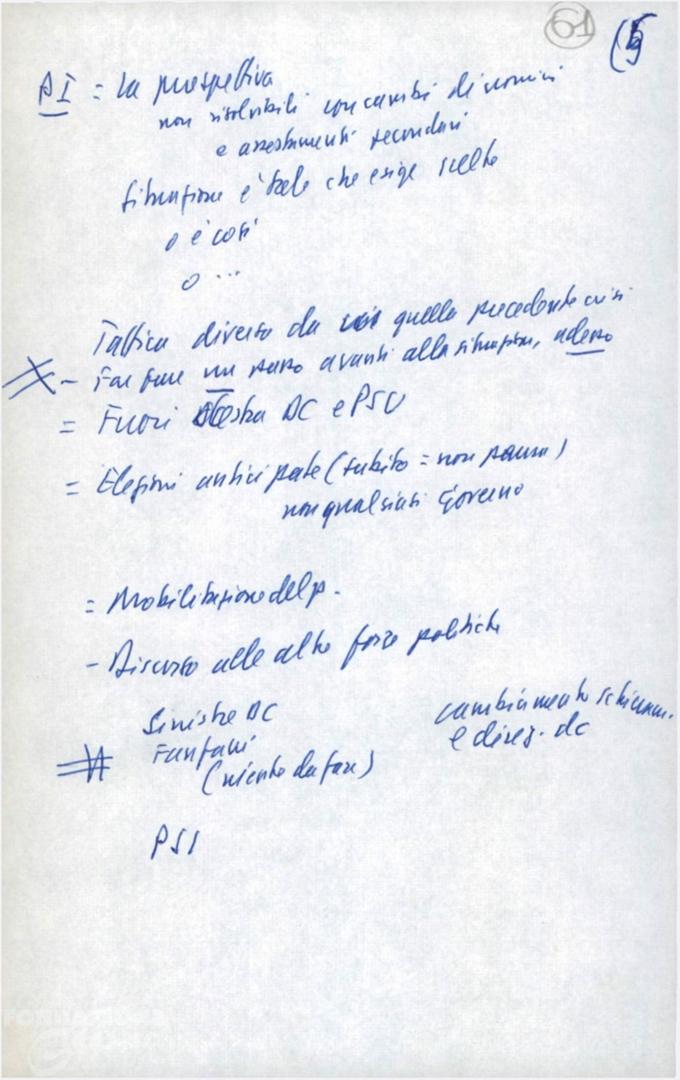 61
(5
= La prospettiva
non risolvibili con cambi di uomini
e assestamenti secondari
Situazione è tale che esige scelte
o è così
o ...
Tattica diversa da quella precedente crisi
- Far fare un passo avanti alla situazione, adesso
= Fuori destra DC e PSU
= Elezioni anticipate (subito = non paura)
non qualsiasi Governo
= Mobilitazione del p.
- Discorso alle altre forze politiche
Sinistre DC
cambiamento schieram.
Fanfani
e direz. dc
(niente da fare)
PSI